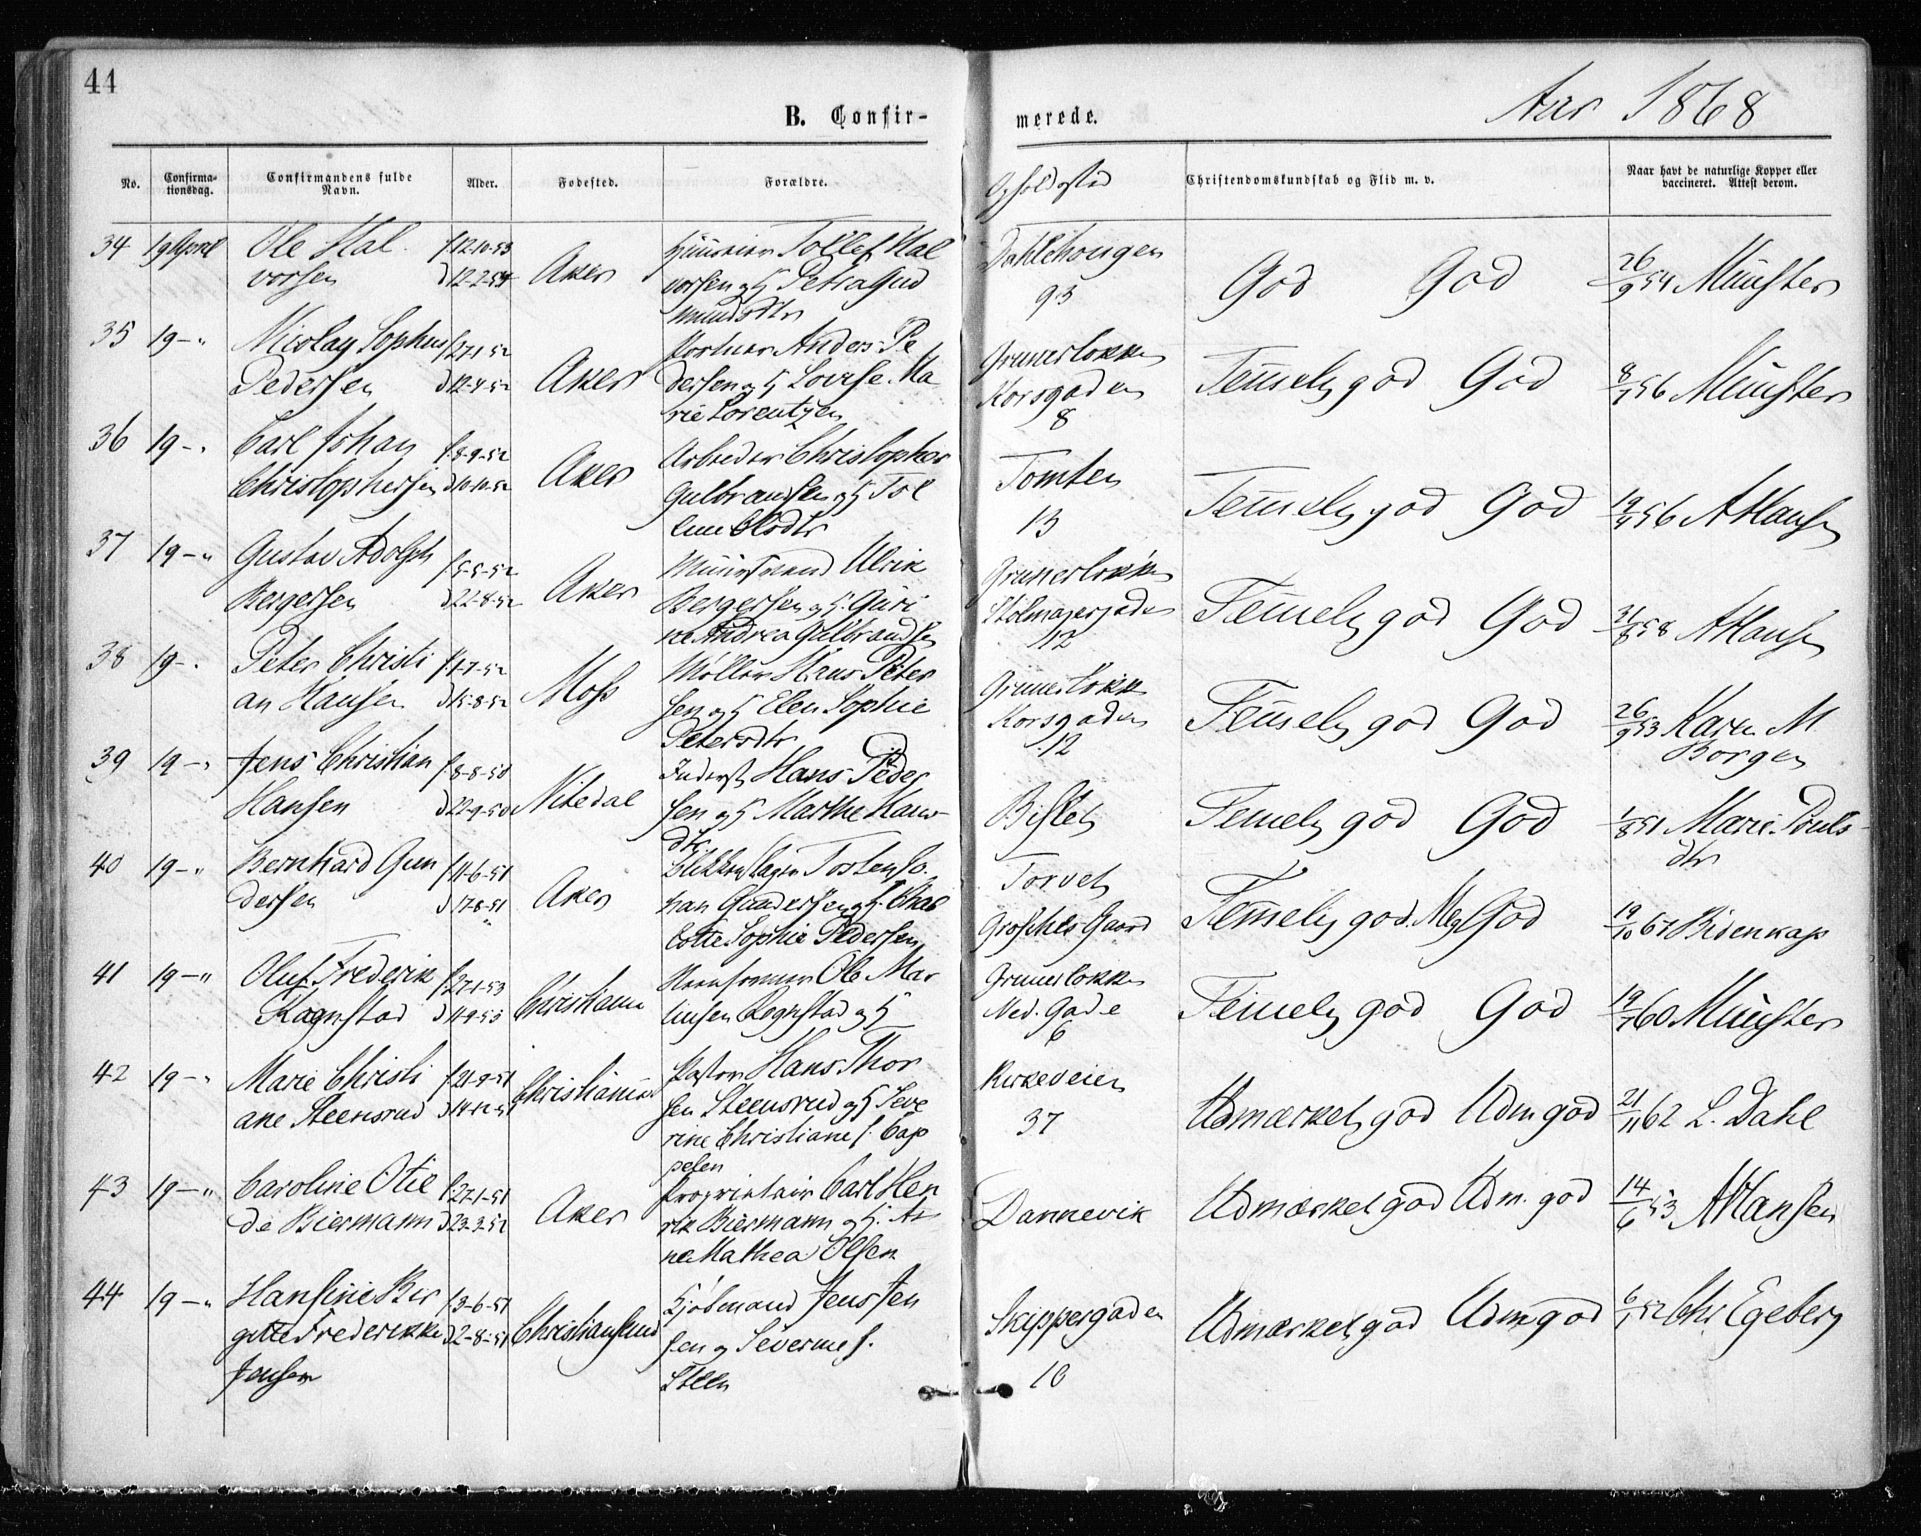 44
B. Confir-
merede.
Aar 1868
No.
Confirma-
tionsdag.
Confirmandens fulde
Navn.
Alder.
Fødested.
Forældre.
Opholdssted
Christendomskundskab og Flid m. v.
Naar havt de naturlige Kopper eller
vaccineret. Attest derom.
34 19 April Ole Hal f. 12-10-53
vorsen d 12-2-54 Aker
Tollef Hal
vorsen og H Petra Gud
mundsdtr
Dahlehougen
93
God God 26/9 54 Münster
35 19 - " Nicolay Sophus f 27-1-52
Pedersen d 12-4-52 Aker
Anders Pe
dersen og H Lovise Ma
rie Lorentzen
Grünerløkken
Korsgaden
8
Temmelig god God 8/7 56 Münster
36 19 - " Carl Johan f. 8-9-52
Christophersen d 10-10-52 Aker
Arbeider Christopher
Gulbrandsen og H Tol
line Olsdtr
Tomten
13
Temmelig god God 19/9 56 A Hansen
37 19 - " Gustav Adolph f 5-5-52
Bergersen d 22-8-52 Aker
Muurmand Ulrik
Bergersen og H. Guri
ne Andrea Gulbrandsen
Grünerløkken
Stolmagergaden
12
Temmelig god God 31/8 58 A Hansen
38 19 - " Peter Christi f. 1-7-52
an Hansen d 15-8-52 Moss
Møller Hans Peter
sen og H Elen Sophie
Petersdtr
Grünerløkk
Korsgaden
12
Temmelig god God 26/9 53 Karen M
Borgen
39 19 - " Jens Christian f. 8-8-50
Hansen d 22-9-50 Nitedal
Inderst Hans Peder
sen og H Marthe Hans-
dtr
Bislet
Temmelig god God 1/8 51 Marie Pouls-
dtr
40 19 - " Bernhard Gun f 11-6-51
dersen d 17-8-51 Aker
Blikkenslager Tosten Jo
han Gundersen og H. Char
lotte Sophie Pedersen
Torvet
Grosches Gaard
Temmelig god. Meg God 19/10 67 Bidenkap
41 19 - " Oluf Frederik f 27-1-53
Rognstad d 11-9-53 Christiania
Ole Mar
tinsen Rognstad og H
Grünerløkken
Ned. Gade
6
Temmelig god God 19/7 60 Münster
42 19 - " Marie Christi f 21-9-51
ane Steensrud d 14-12-51 Christiania
Pastor Hans Thor
sen Steensrud og H Seve
rine Christiane f. Cap
pelen
Kirkeveien
37
Udmærket god Udm god 21/11 62 L. Dahl
43 19 - " Caroline Otie f 27-1-51
de Biermann d 23-3-52 Aker
Proprietair Carl Hen
rik Biermann og H. An
ne Mathea Olsen
Dannevik
Udmærket god Udm. god 14/6 53 A Hansen
44 19 - " Hansine Bir f 3-6-51
gitte Frederikke d 2-8-51 Christianssund
Jensen
Kjøbmand Jens Jen
sen og Severine f.
Steen
Skippergaden
10
Udmærket god Udm god 6/1 52 Chr Egeberg